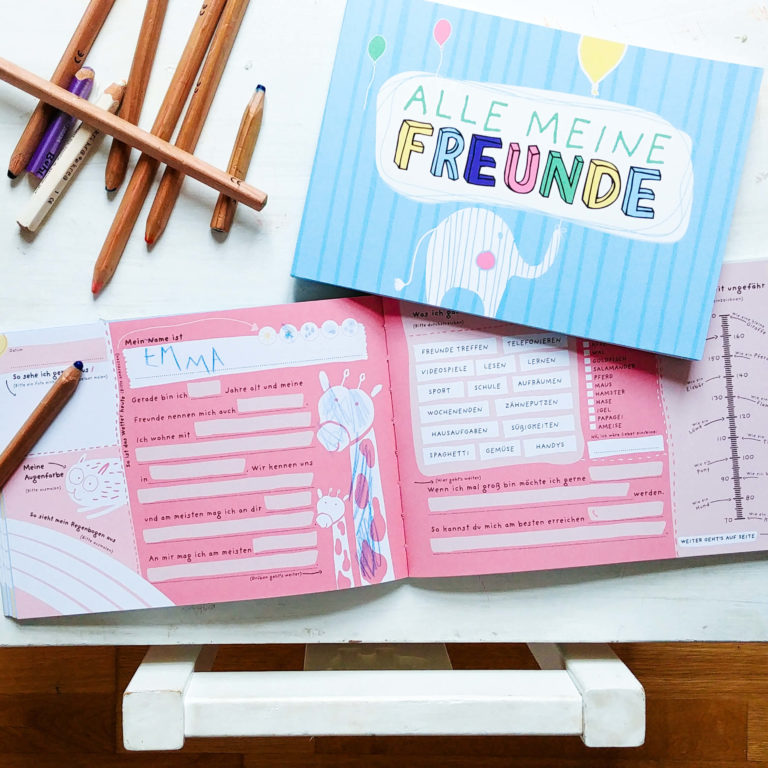 ALLE MEINE
FREUNDE
Datum
So sehe ich gerade aus /
Meine
Augenfarbe
(Bitte ausmalen)
So sieht mein Regenbogen aus
(Bitte ausmalen)
So ist das Wetter heute
Mein Name ist
EMMA
Gerade bin ich
Jahre alt und meine
Freunde nennen mich auch
Ich wohne mit
in
. Wir kennen uns
und am meisten mag ich an dir
An mir mag ich am meisten
(Drüben geht's weiter)
FREUNDE TREFFEN
TELEFONIEREN
VIDEOSPIELE
LESEN
LERNEN
SPORT
SCHULE
AUFRÄUMEN
WOCHENENDEN
ZÄHNEPUTZEN
HAUSAUFGABEN
SÜßIGKEITEN
SPAGHETTI
GEMÜSE
HANDYS
GOLDFISCH
SALAMANDER
PFERD
MAUS
HAMSTER
HASE
IGEL
PAPAGEI
AMEISE
(Hier geht's weiter)
Wenn ich mal groß bin möchte ich gerne
werden.
So kannst du mich am besten erreichen
ungefähr
150
130
120
110
100
90
80
70
WEITER GEHT'S AUF SEITE